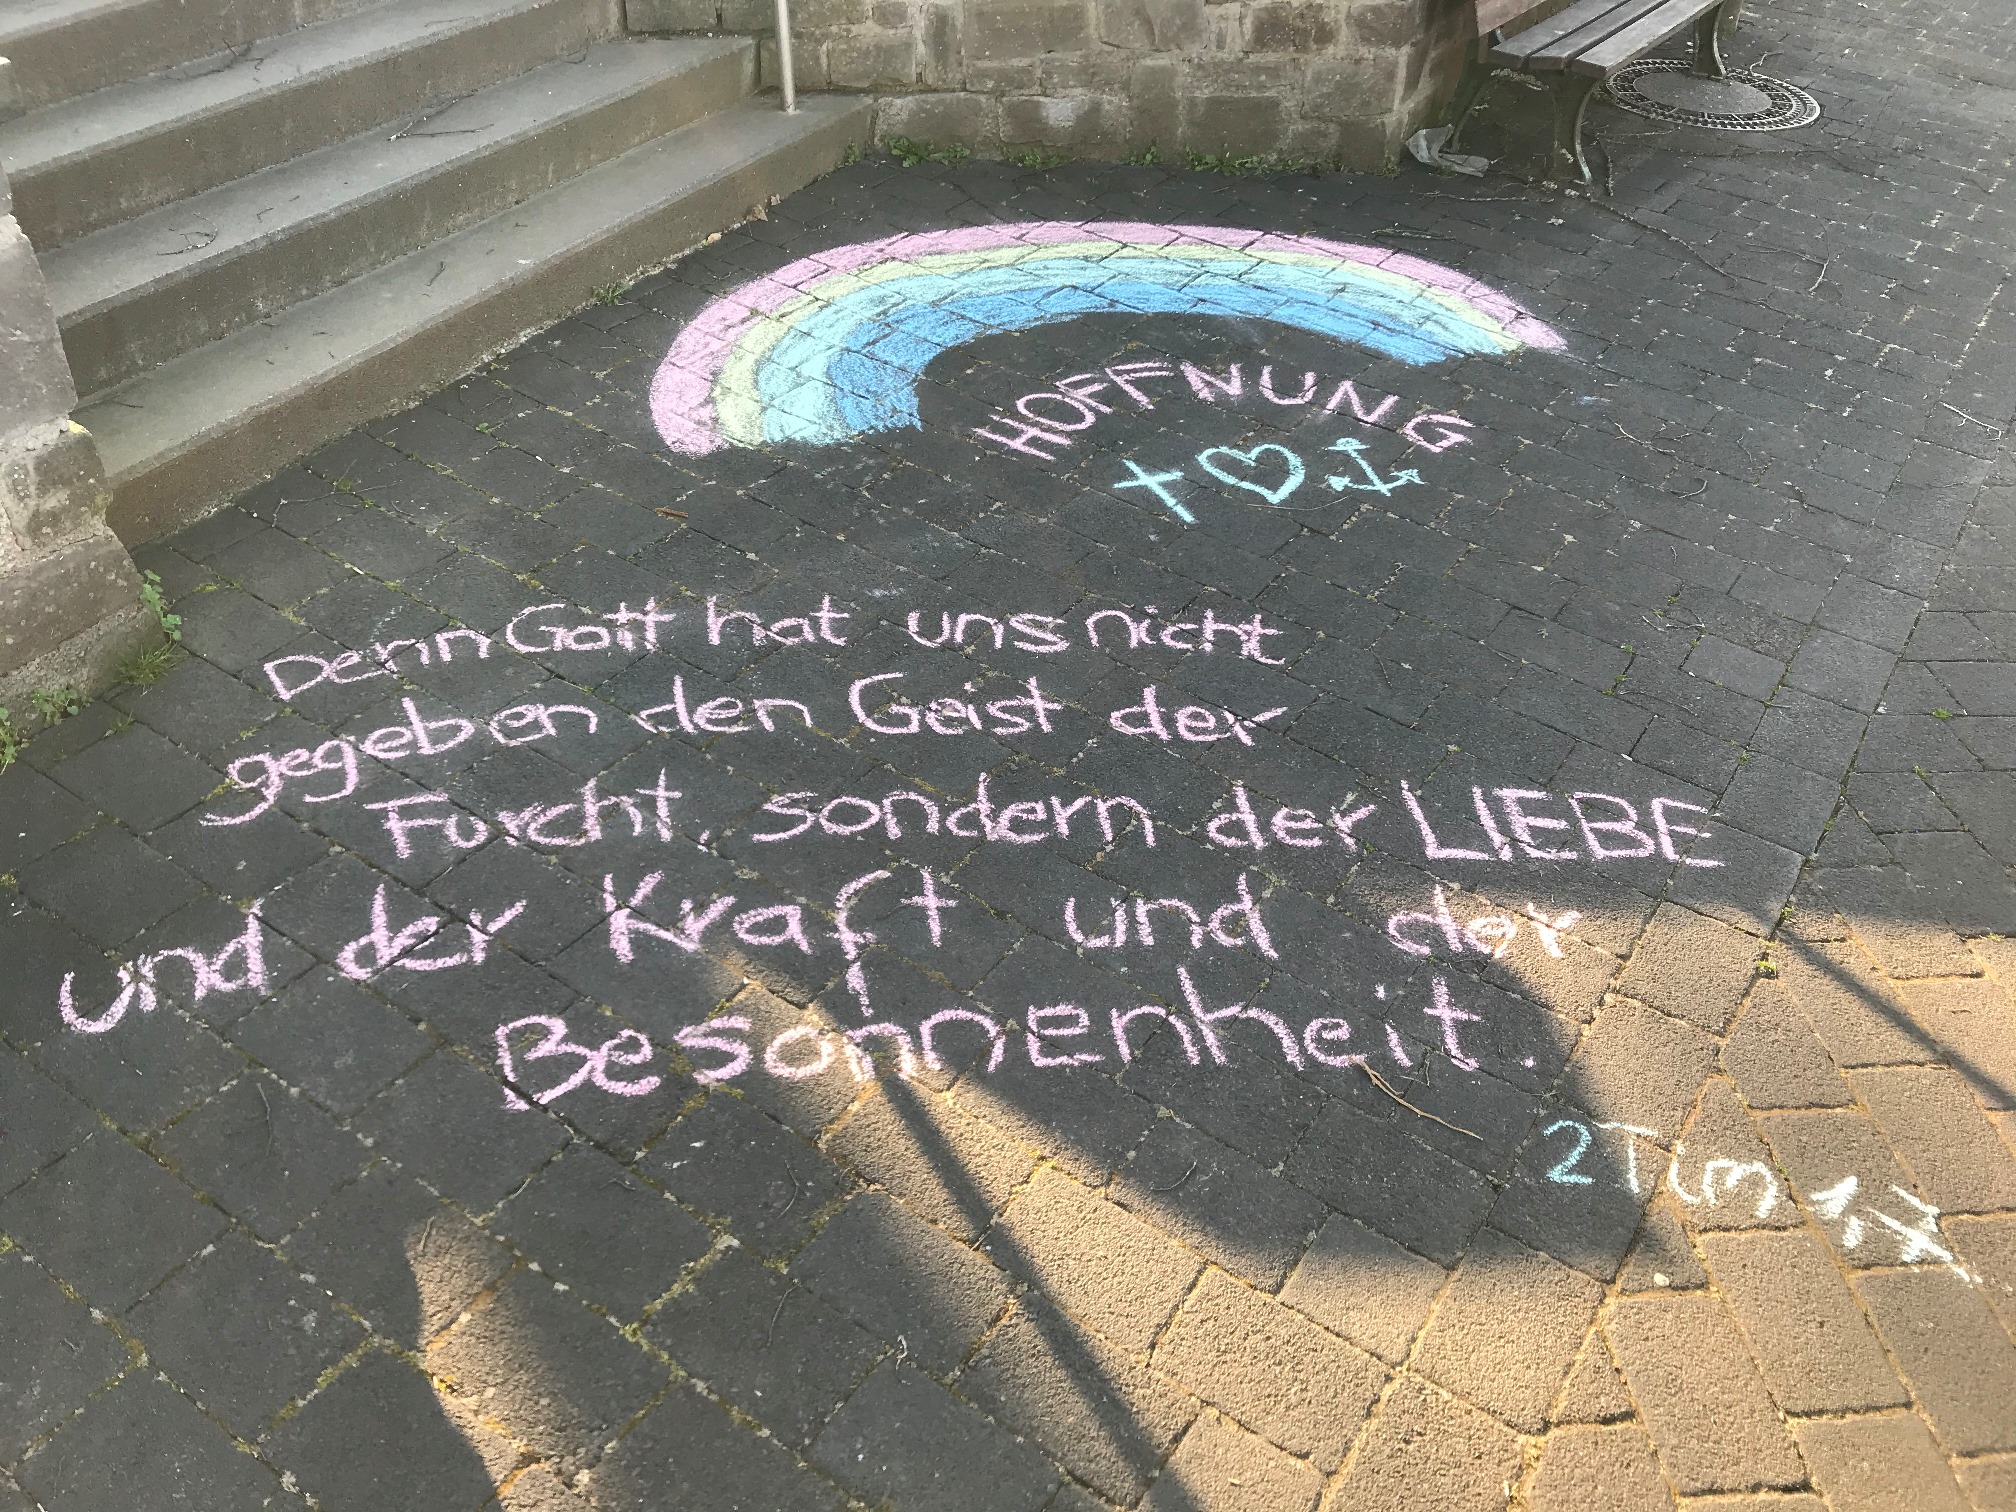 HOFFNUNG
Denn Gott hat uns nicht
gegeben den Geist der
Furcht, sondern der LIEBE
und der Kraft und der
Besonnenheit.
2Tim 1,7